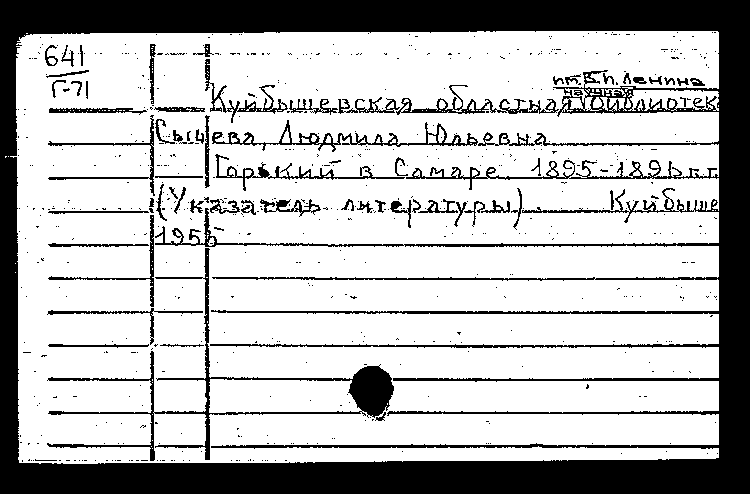 641
Г-71
им. В.И. Ленина
научная
Куйбышевская областная библиотек
Людмила Юльевна.
Горький в Самаре. 1895-1896 г.г.
(Указатель литературы). Куйбыше
1955